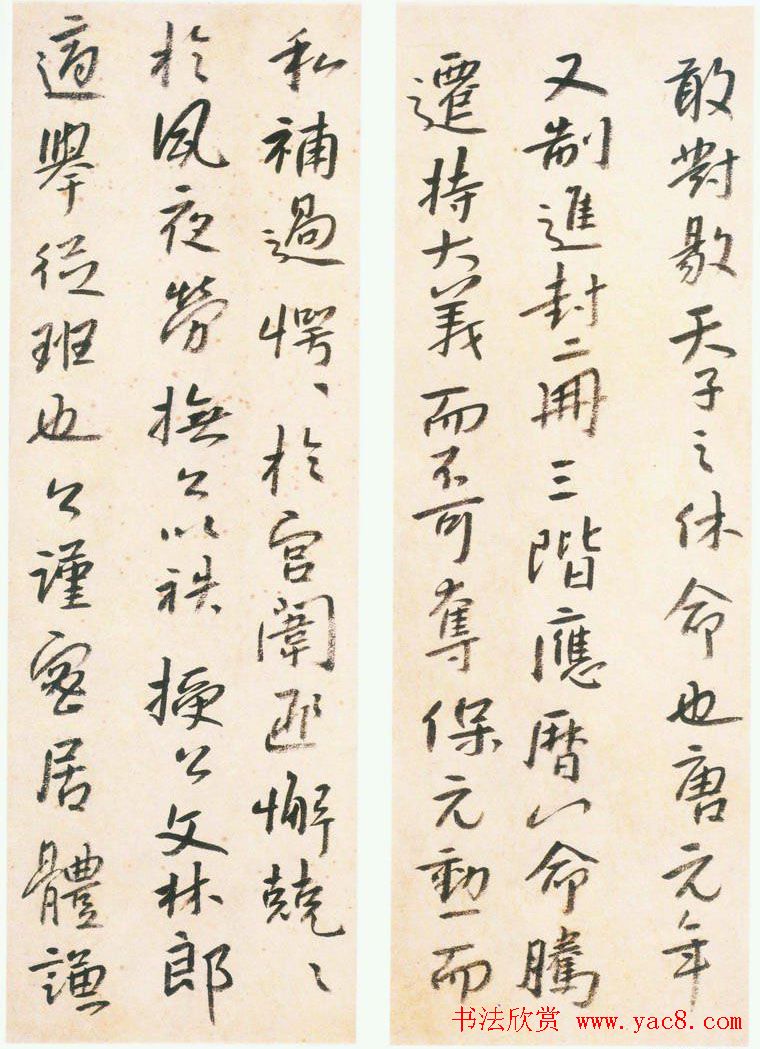 敢對敭天子之休命也唐元年
又制進封二冊三階應曆以命騰
遷持大義而不可奪保元勳一而
私補過愕愕於宮闈匪懈兢兢
於夙夜勞撫公以袟授公文林郎
適舉從班也公謹密居體謙
书法欣赏 www.yac8.com